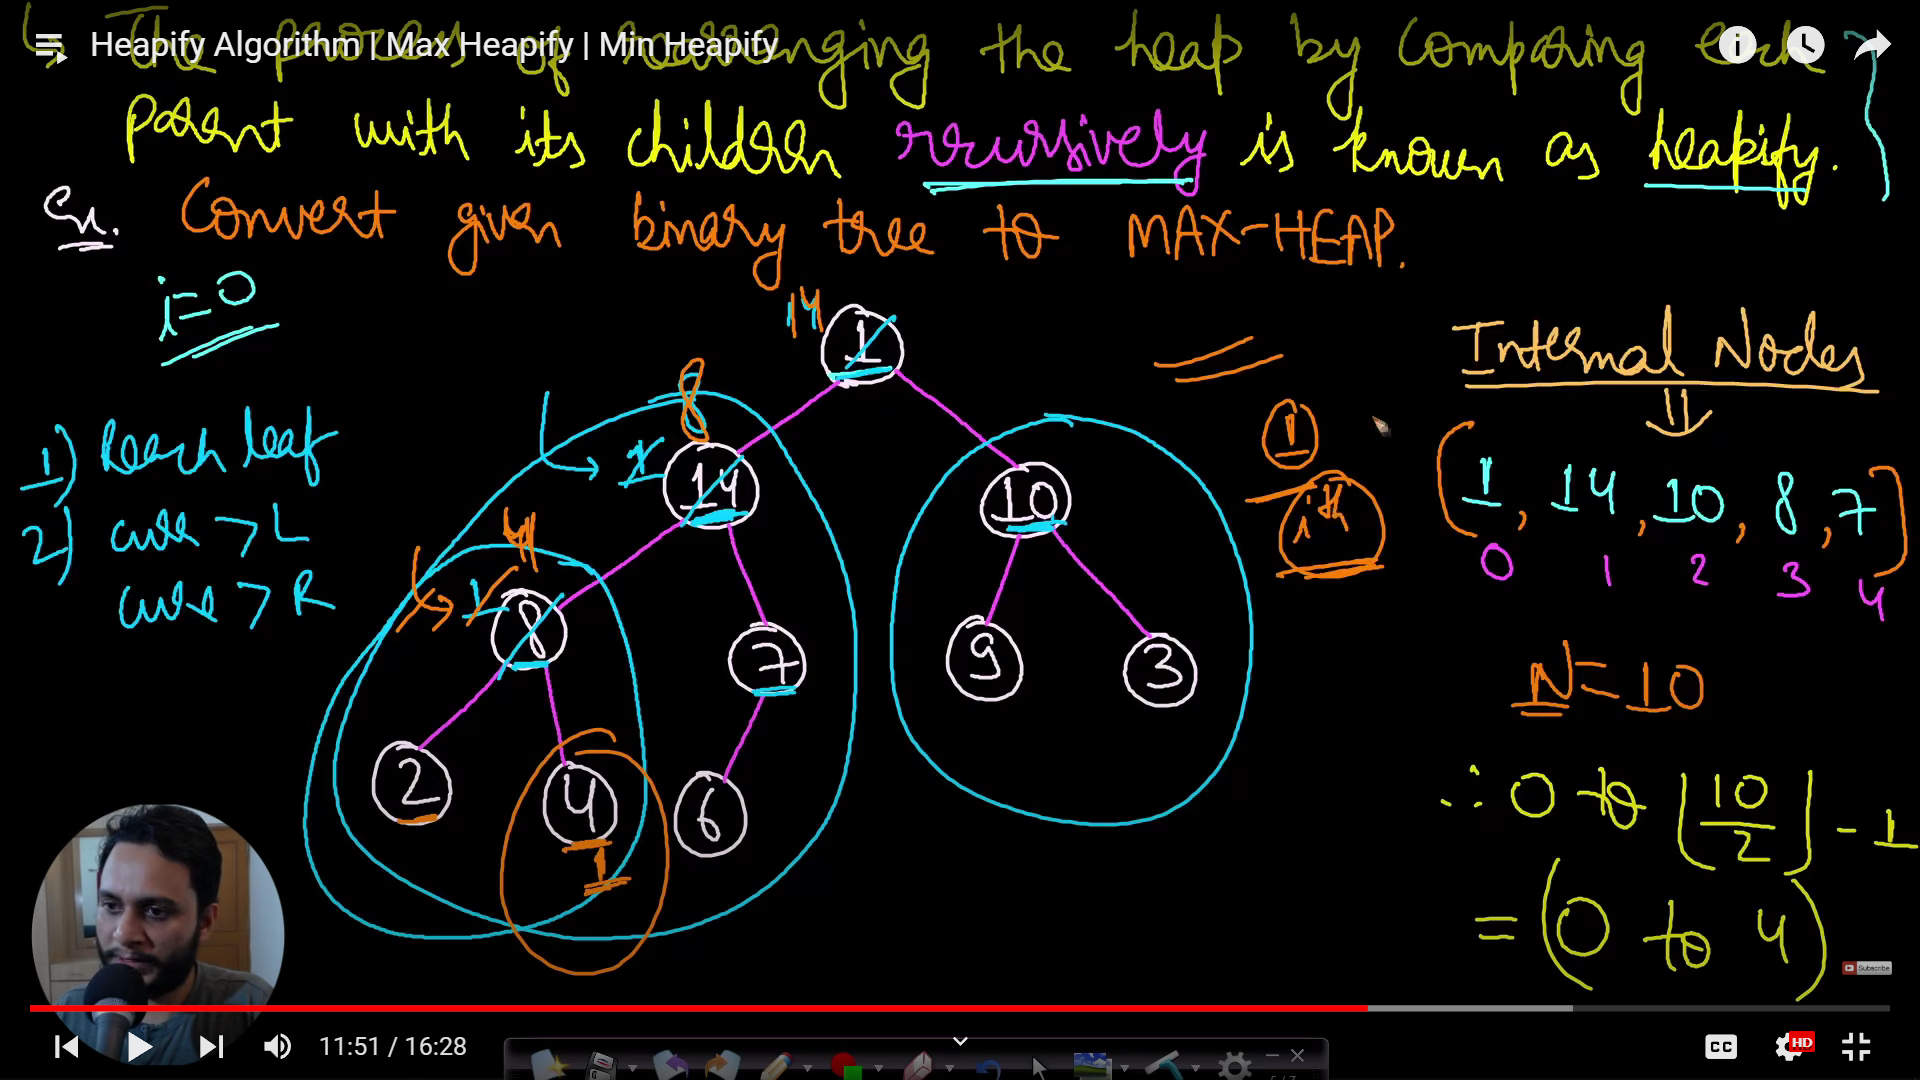 Heapify Algorithm | Max Heapify | Min Heapify
↳ The process of rearrenging the heap by comparing each
parent with its children recursively is known as heapify.
Ex. Convert given binary tree to MAX-HEAP.
i=0
14
1
8
1
14
10
1
4
1
8
7
9
3
2
4
6
1
1) Reach leaf
2) curr > L
curr > R
1
ith
Internal Nodes
⇓
(1, 14, 10, 8, 7)
0 1 2 3 4
N=10
∴ 0 to ⌊10/2⌋ - 1
= (0 to 4)
Subscribe
11:51 / 16:28
CC
HD